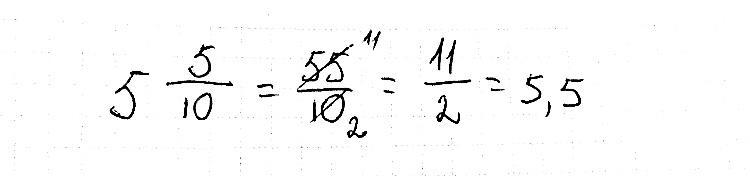 5 5/10 = 55/10 11 2 = 11/2 = 5,5